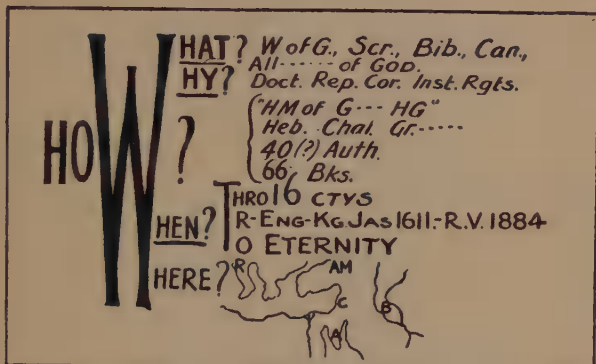 WHAT? W of G., Scr., Bib., Can.,
All------ of GOD.
WHY? Doct. Rep. Cor. Inst. Rgts.
HOW?
"HM of G--- HG"
Heb. Chal. Gr.-----
40(?) Auth.
66 Bks.
WHEN? THRO 16 CTYS
TR-ENG-KG.JAS 1611.-R.V. 1884
TO ETERNITY
WHERE? R AM
C B
A